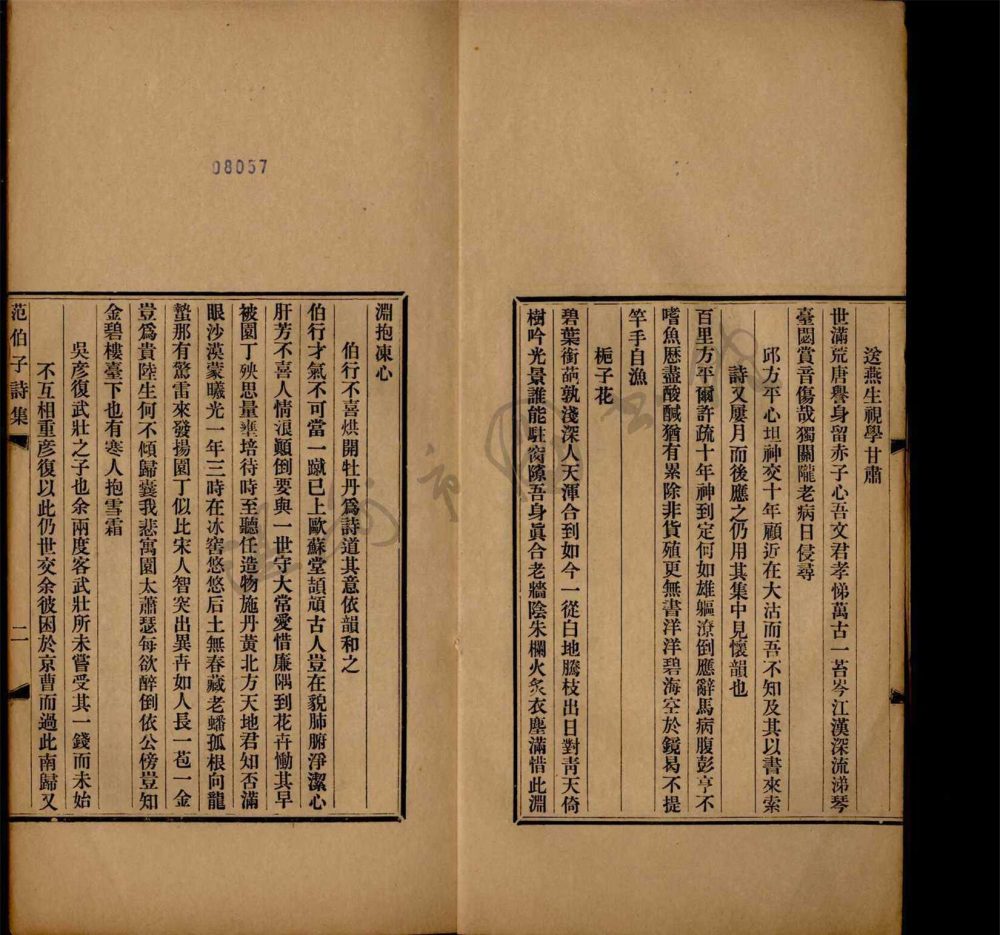 送燕生視學甘肅
世滿荒唐譽身留赤子心吾文君孝悌萬古一苔岑江漢深流涕琴
臺閟賞音傷哉獨關隴老病日侵尋
邱方平心坦神交十年顧近在大沽而吾不知及其以書來索
詩又屢月而後應之仍用其集中見懷韻也
百里方平爾許疏十年神到定何如雄軀潦倒應辭馬病腹彭亨不
嗜魚歷盡酸鹹猶有累除非貨殖更無書洋洋碧海空於鏡曷不提
竿手自漁
梔子花
碧葉銜葩孰淺深人天渾合到如今一從白地騰枝出日對靑天倚
樹吟光景誰能駐窗隙吾身眞合老牆陰朱欄火炙衣塵滿惜此淵
淵抱凍心
伯行不喜烘開牡丹爲詩道其意依韻和之
伯行才氣不可當一蹴已上歐蘇堂頡頏古人豈在貌肺腑淨潔心
肝芳不喜人情浪顚倒要與一世守大常愛惜廉隅到花卉慟其早
被園丁殃思量壅培待時至聽任造物施丹黃北方天地君知否滿
眼沙漠蒙曦光一年三時在冰窖悠悠后土無春藏老蟠孤根向龍
蟄那有驚雷來發揚園丁似比宋人智突出異卉如人長一苞一金
豈爲貴陸生何不傾歸囊我悲寓園太蕭瑟每欲醉倒依公傍豈知
金碧樓臺下也有寒人抱雪霜
吳彥復武壯之子也余兩度客武壯所未嘗受其一錢而未始
不互相重彥復以此仍世交余彼困於京曹而過此南歸又
范伯子詩集
二
08057